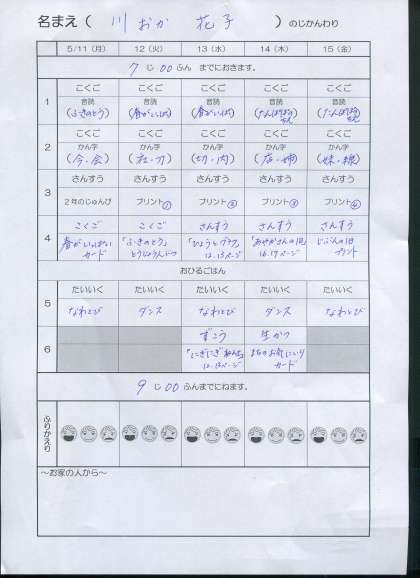 名まえ（ 川おか 花子 ）のじかんわり
5/11（月） 12（火） 13（水） 14（木） 15（金）
7じ00ふん までにおきます。
1 こくご こくご こくご こくご こくご
音読 音読 音読 音読 音読
(ふきのとう) (春がいっぱい) (春がいっぱい) (たんぽぽの) (たんぽぽの)
2 こくご こくご こくご こくご こくご
かん字 かん字 かん字 かん字 かん字
(今・会) (社・刀) (切・内) (店・姉) (妹・線)
3 さんすう さんすう さんすう さんすう さんすう
2年のじゅんび プリント① プリント② プリント③ プリント④
4 こくご こくご さんすう さんすう さんすう
春がいっぱい 「ふきのとう」 「ひょうとグラフ」 じぶんの1日
カード 12.13ページ 16.17ページ プリント
おひるごはん
5 たいいく たいいく たいいく たいいく たいいく
なわとび ダンス なわとび ダンス なわとび
6 ずこう 生かつ
「にぎにぎねん土」 まちのお気に入り
12.13ページ カード
9じ00ふんまでにねます。
ふりかえり
～お家の人から～